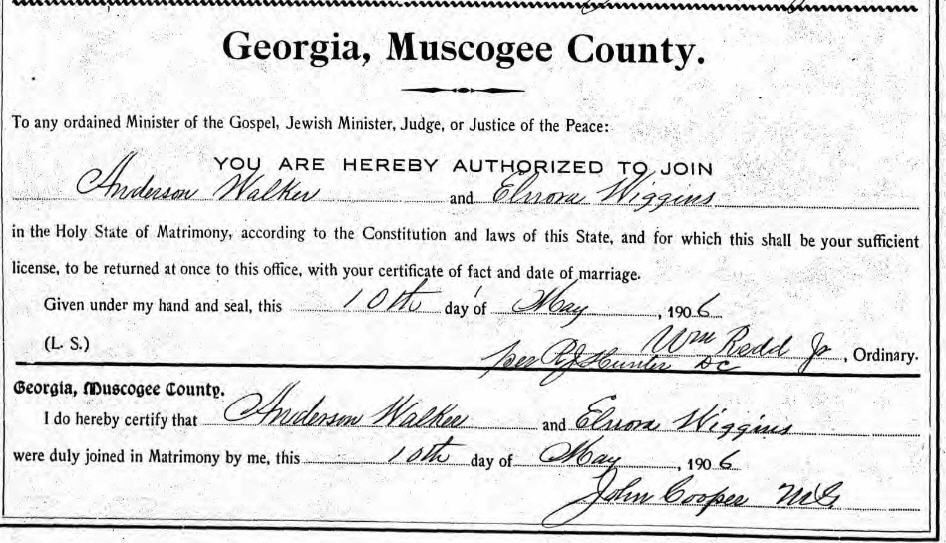 Georgia, Muscogee County.
To any ordained Minister of the Gospel, Jewish Minister, Judge, or Justice of the Peace:
YOU ARE HEREBY AUTHORIZED TO JOIN
Anderson Walker and Elnora Wiggins
in the Holy State of Matrimony, according to the Constitution and laws of this State, and for which this shall be your sufficient
license, to be returned at once to this office, with your certificate of fact and date of marriage.
Given under my hand and seal, this 10th day of May, 1906
(L. S.) Wm Redd Jr, Ordinary.
per RJ Hunter DC
Georgia, Muscogee County.
I do hereby certify that Anderson Walker and Elnora Wiggins
were duly joined in Matrimony by me, this 10th day of May, 1906
John Cooper MG